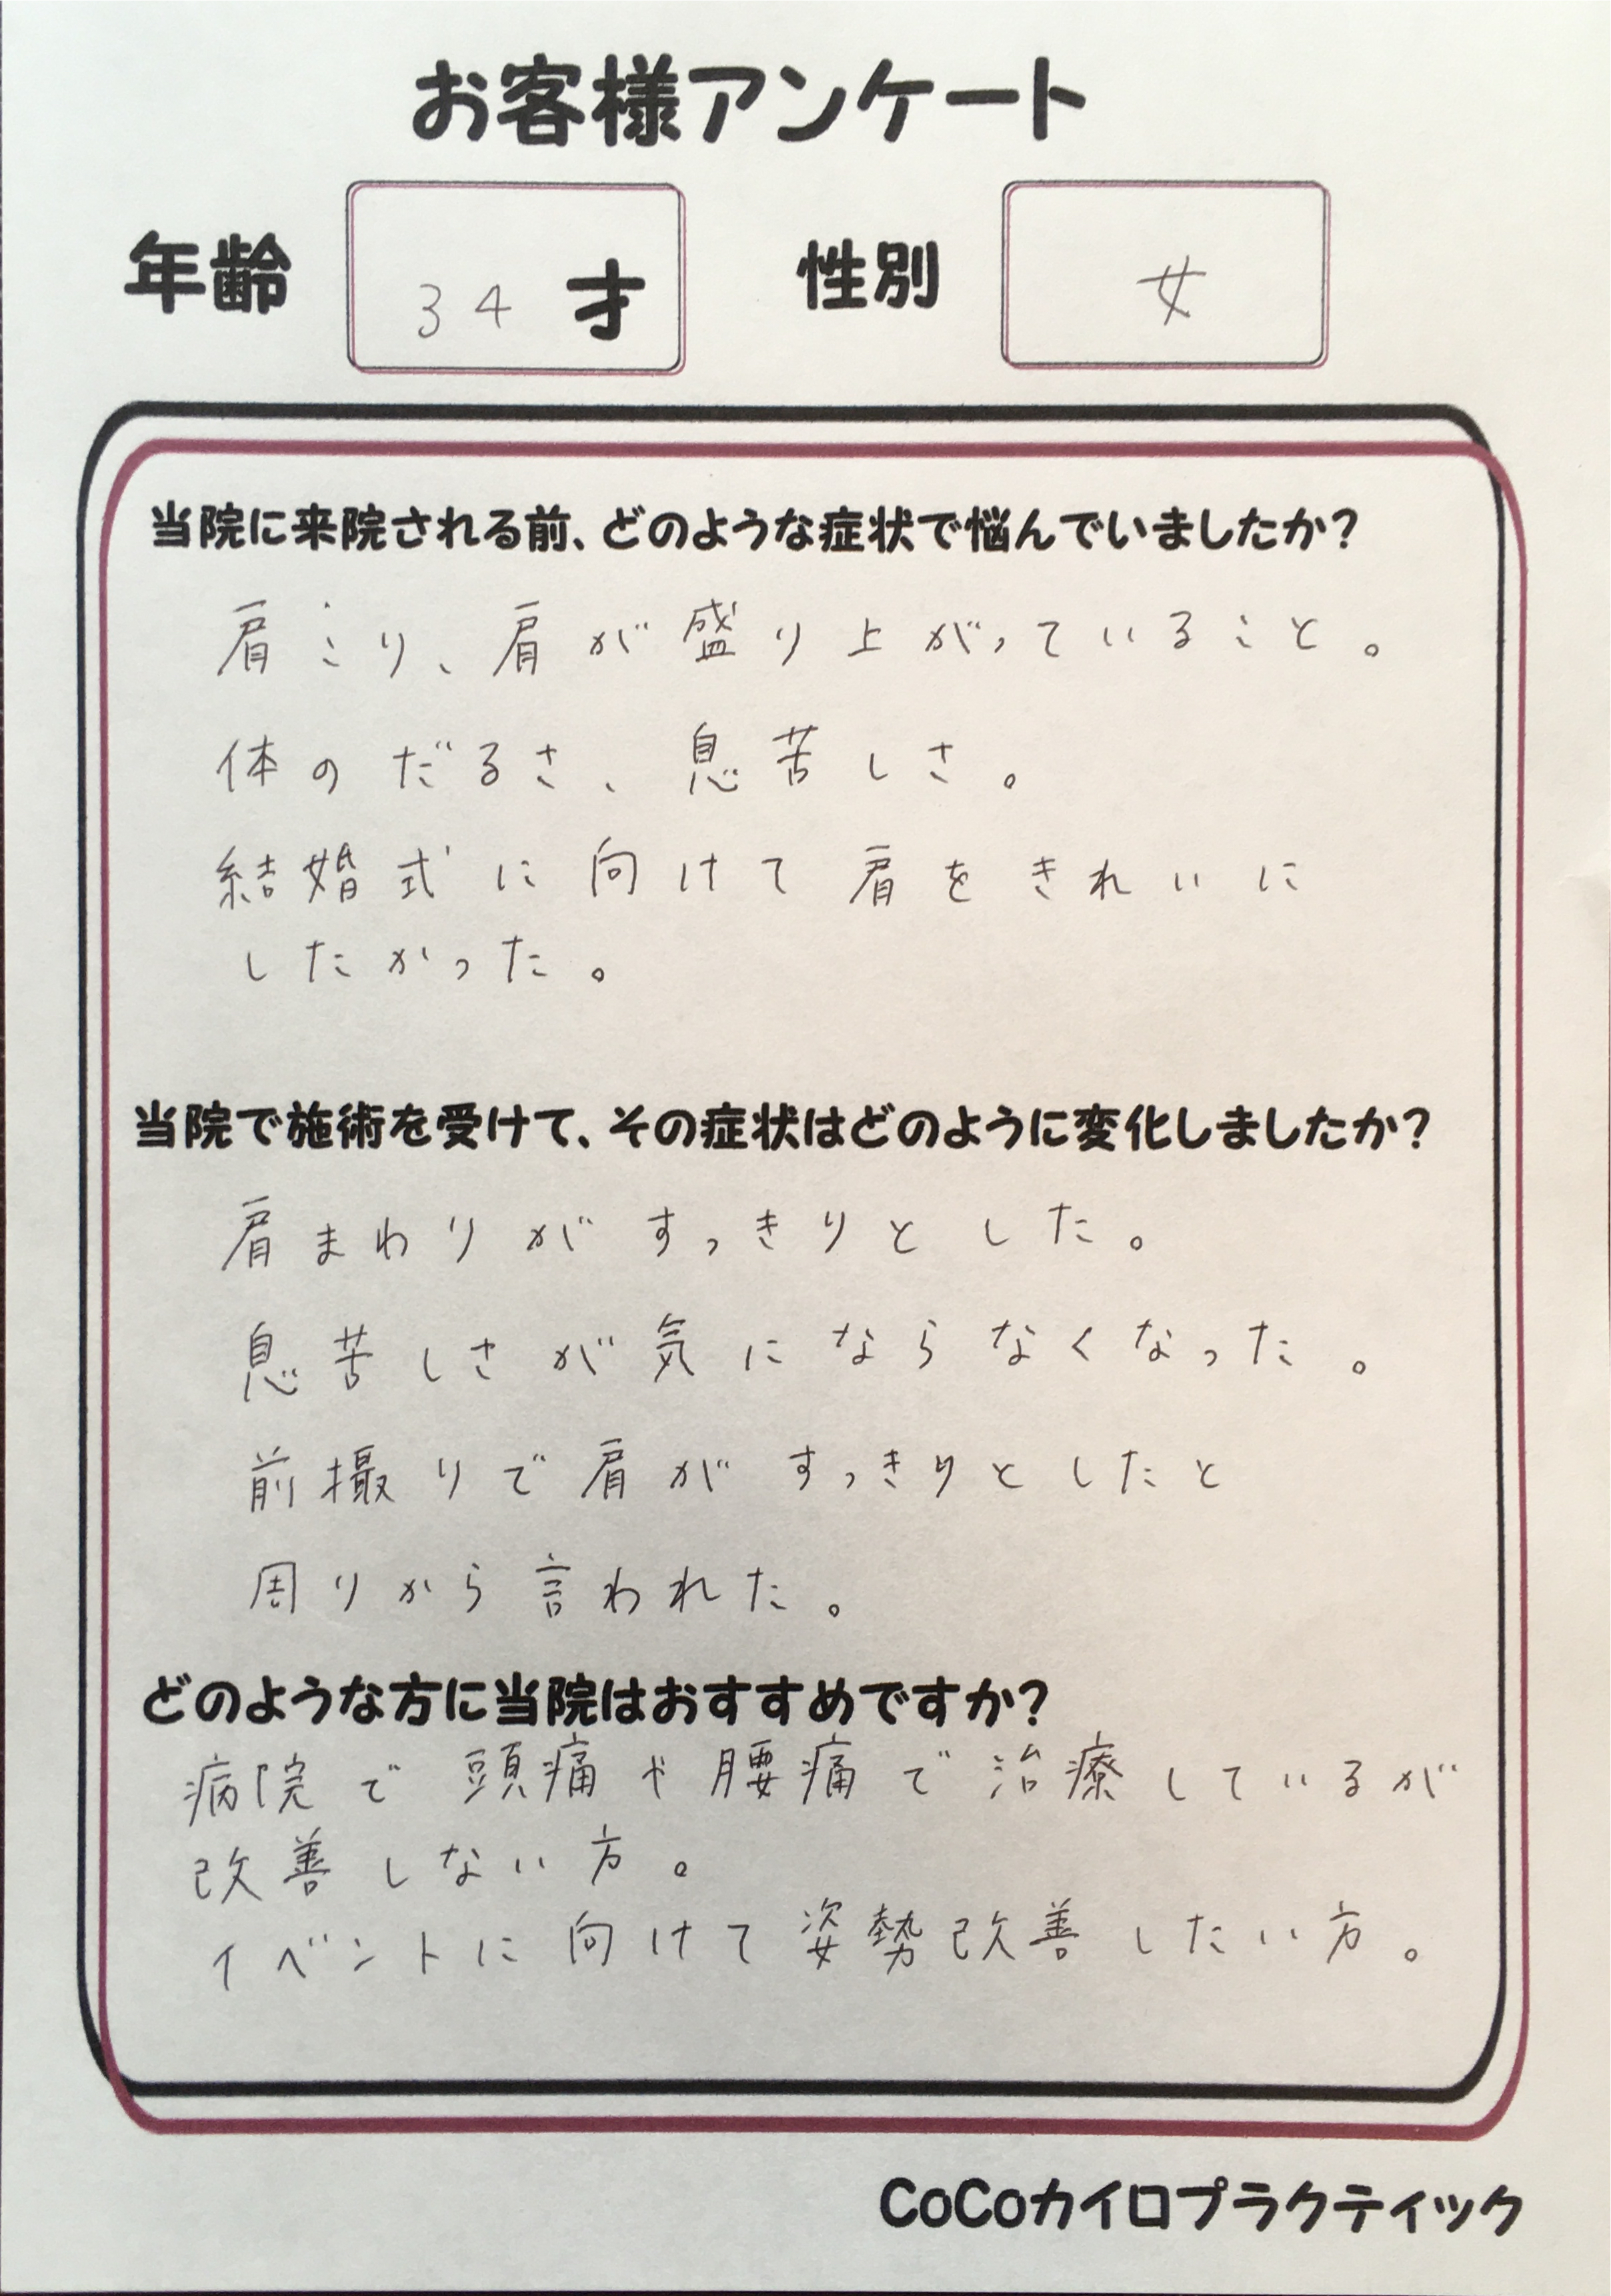 お客様アンケート
年齢 34才 性別 女
当院に来院される前、どのような症状で悩んでいましたか?
肩こり、肩が盛り上がっていること。
体のだるさ、息苦しさ。
結婚式に向けて肩をきれいに
したかった。
当院で施術を受けて、その症状はどのように変化しましたか?
肩まわりがすっきりとした。
息苦しさが気にならなくなった。
前撮りで肩がすっきりとしたと
周りから言われた。
どのような方に当院はおすすめですか?
病院で頭痛や腰痛で治療しているが
改善しない方。
イベントに向けて姿勢改善したい方。
CoCoカイロプラクティック